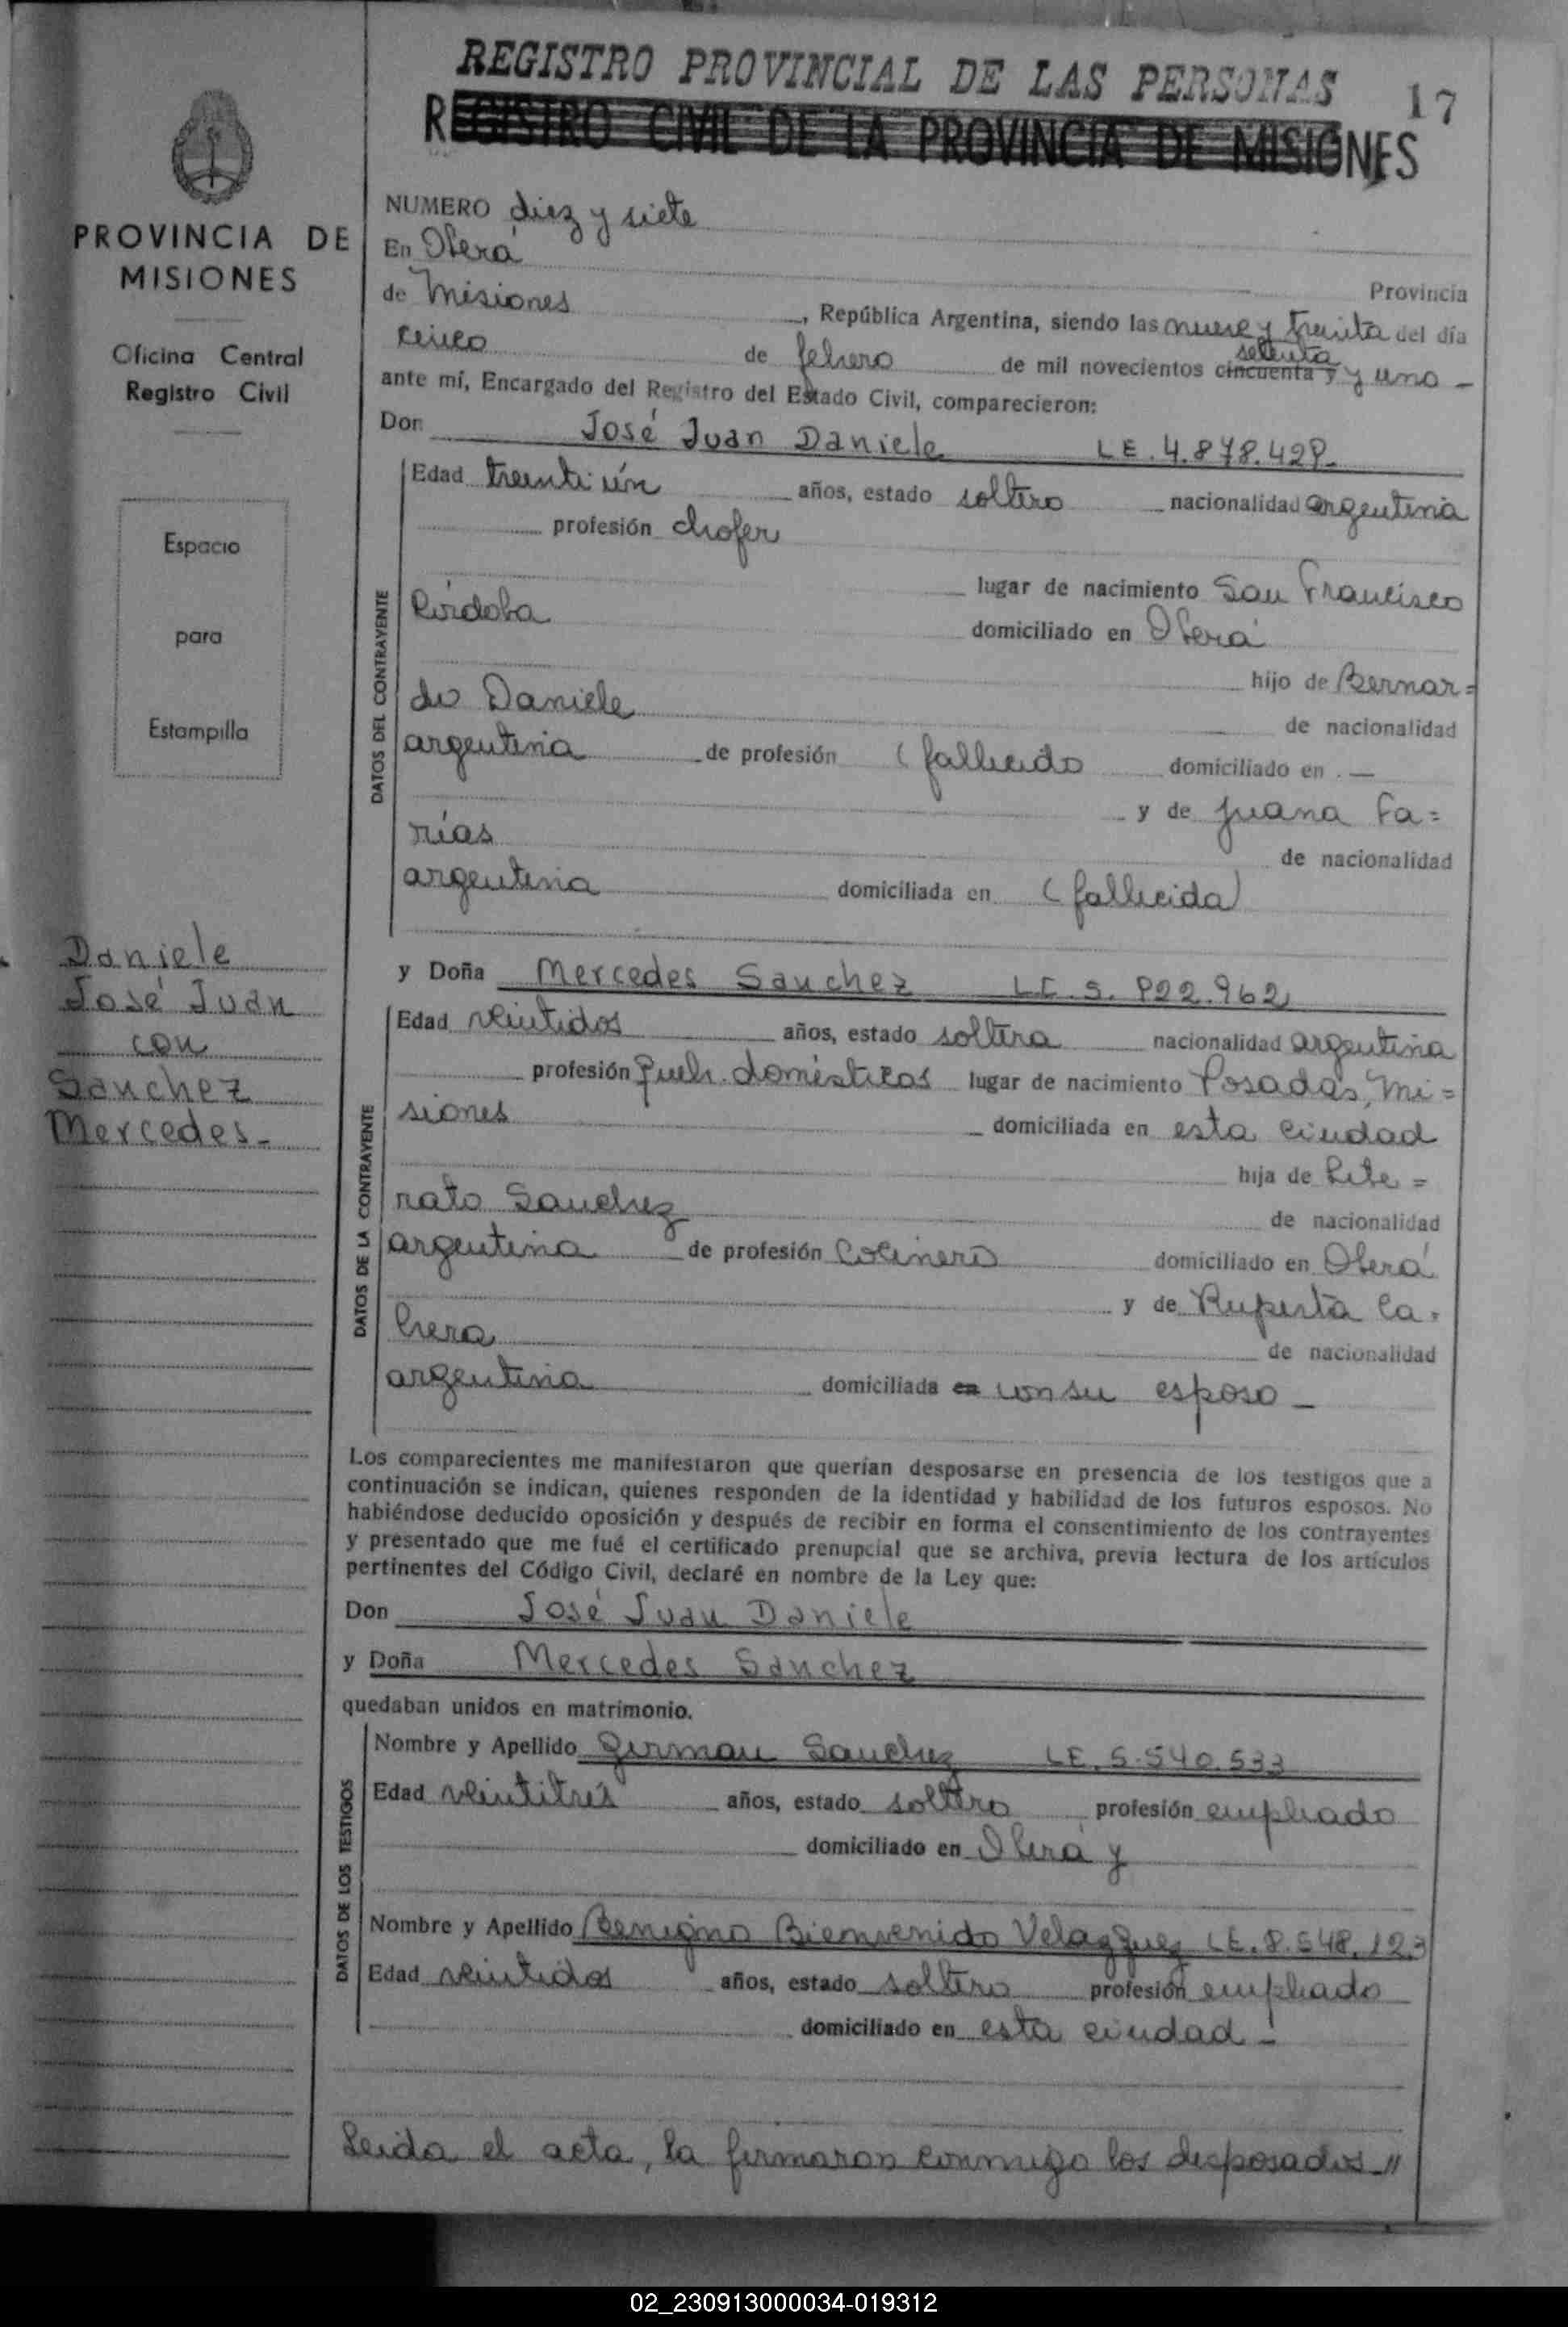 REGISTRO PROVINCIAL DE LAS PERSONAS
17
REGISTRO CIVIL DE LA PROVINCIA DE MISIONES
PROVINCIA DE
MISIONES
Oficina Central
Registro Civil
Espacio
para
Estampilla
Daniele
José Juan
con
Sanchez
Mercedes -
NUMERO diez y siete
En Oberá
Provincia
de Misiones , República Argentina, siendo las nueve y treinta del día
cinco de febrero de mil novecientos cincuenta y setenta y uno -
ante mí, Encargado del Registro del Estado Civil, comparecieron:
Don José Juan Daniele LE. 4.878.428-
DATOS DEL CONTRAYENTE
Edad treinti ún años, estado soltero nacionalidad argentina
profesión chofer
lugar de nacimiento San Francisco
Córdoba domiciliado en Oberá
hijo de Bernar=
do Daniele de nacionalidad
argentina de profesión (fallecido domiciliado en . —
y de Juana Fa=
rías de nacionalidad
argentina domiciliada en (fallecida)
y Doña Mercedes Sanchez LC. 5. 922.962
DATOS DE LA CONTRAYENTE
Edad veintidos años, estado soltera nacionalidad argentina
profesión queh. domésticos lugar de nacimiento Posadas, Mi=
siones domiciliada en esta ciudad
hija de Libe=
rato Sanchez de nacionalidad
argentina de profesión Cocinero domiciliado en Oberá
y de Ruperta Ca=
brera de nacionalidad
argentina domiciliada en con su esposo -
Los comparecientes me manifestaron que querían desposarse en presencia de los testigos que a
continuación se indican, quienes responden de la identidad y habilidad de los futuros esposos. No
habiéndose deducido oposición y después de recibir en forma el consentimiento de los contrayentes
y presentado que me fué el certificado prenupcial que se archiva, previa lectura de los artículos
pertinentes del Código Civil, declaré en nombre de la Ley que:
Don José Juan Daniele
y Doña Mercedes Sanchez
quedaban unidos en matrimonio.
DATOS DE LOS TESTIGOS
Nombre y Apellido German Sanchez LE. 5.540.533
Edad veintitrés años, estado soltero profesión empleado
domiciliado en Oberá y
Nombre y Apellido Benigno Bienvenido Velazquez LE. 8.548.123
Edad veintidos años, estado soltero profesión empleado
domiciliado en esta ciudad -
Leida el acta, la firmaron conmigo los desposados //
02_230913000034-019312